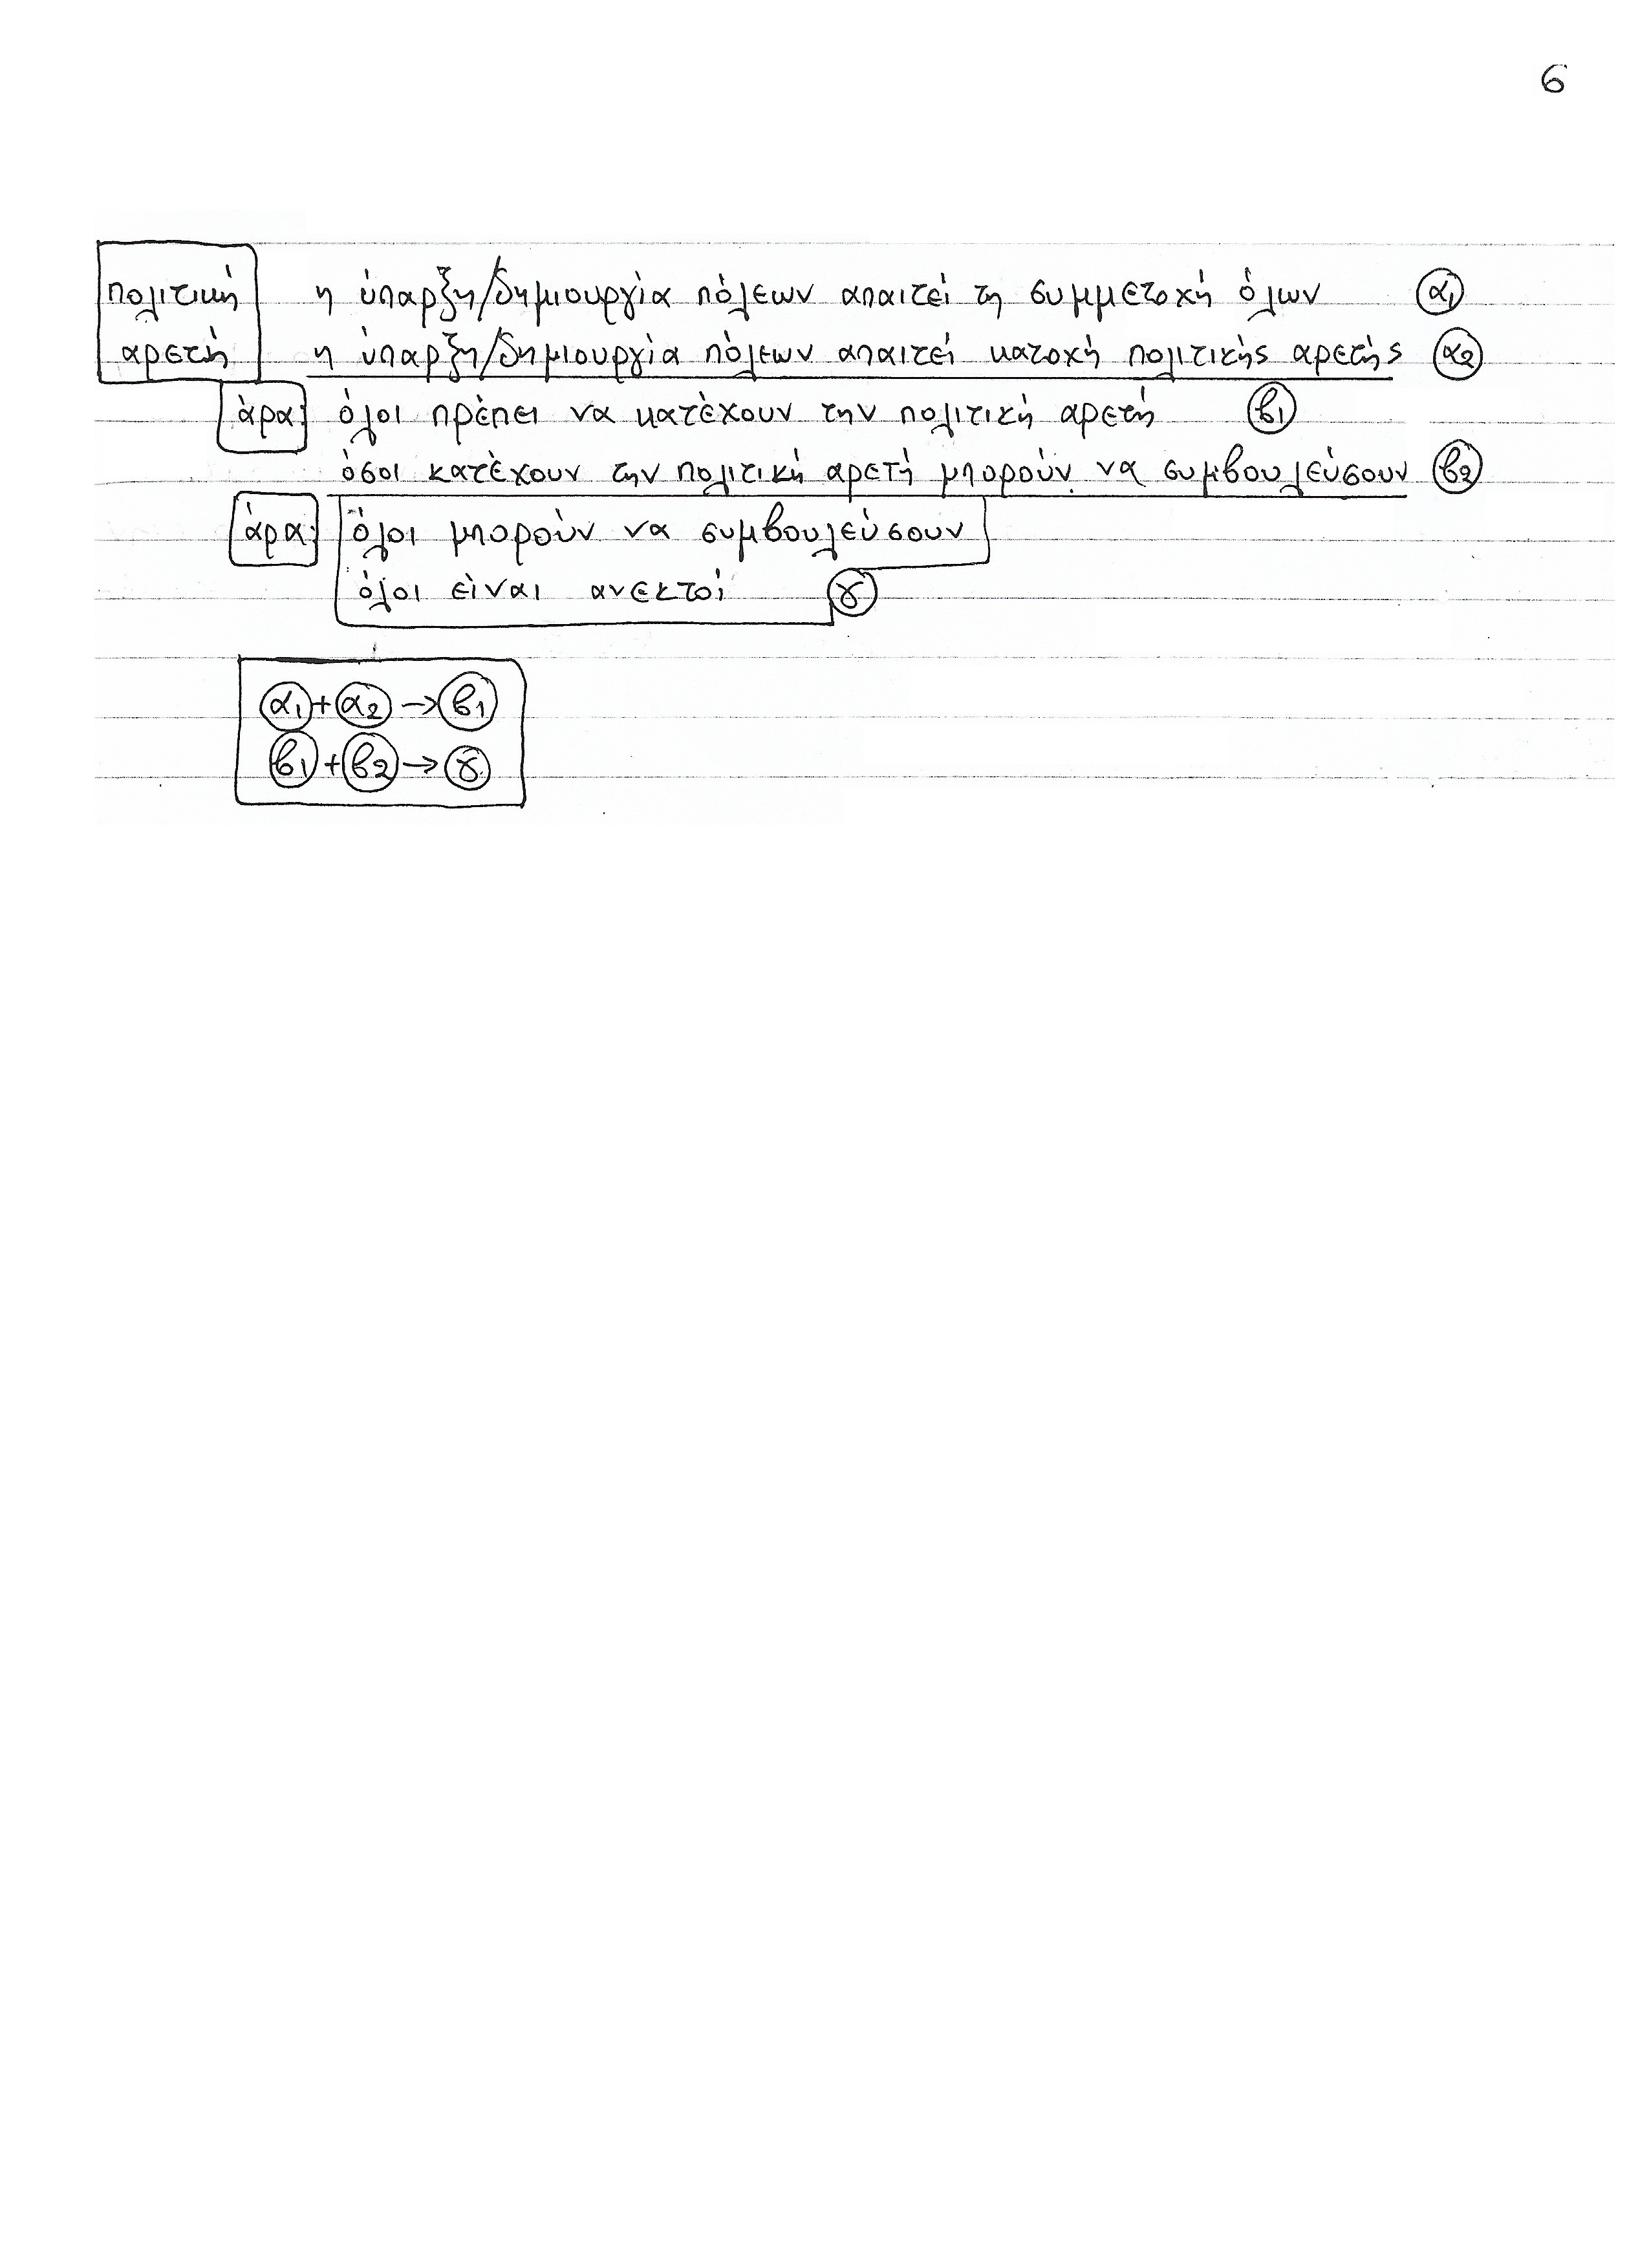 6
πολιτική η ύπαρξη/δημιουργία πόλεων απαιτεί τη συμμετοχή όλων α1
αρετή η ύπαρξη/δημιουργία πόλεων απαιτεί κατοχή πολιτικής αρετής α2
άρα: όλοι πρέπει να κατέχουν την πολιτική αρετή β1
όσοι κατέχουν την πολιτική αρετή μπορούν να συμβουλεύσουν β2
άρα: όλοι μπορούν να συμβουλεύσουν
όλοι είναι ανεκτοί γ
α1 + α2 → β1
β1 + β2 → γ